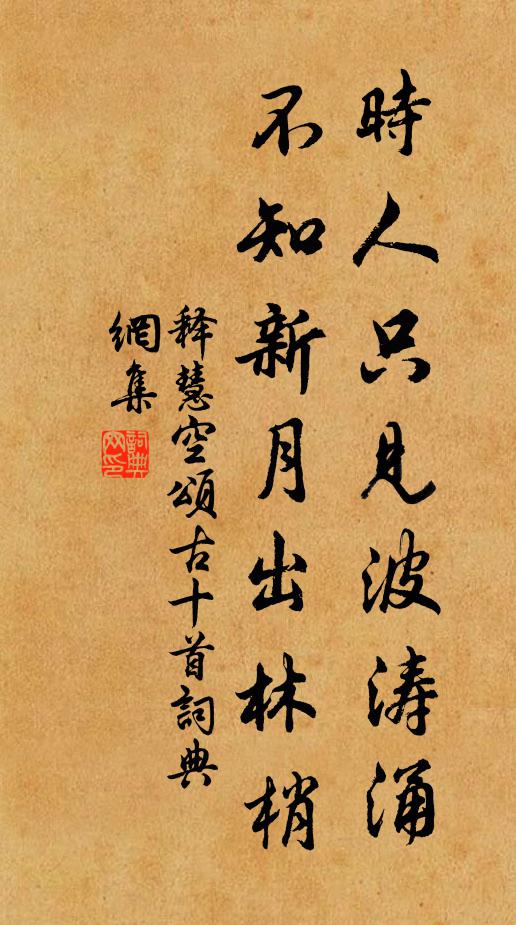 時人只見波涛涌
不知新月出林梢
释慧空頌古十首詞典
網集
詞典網印